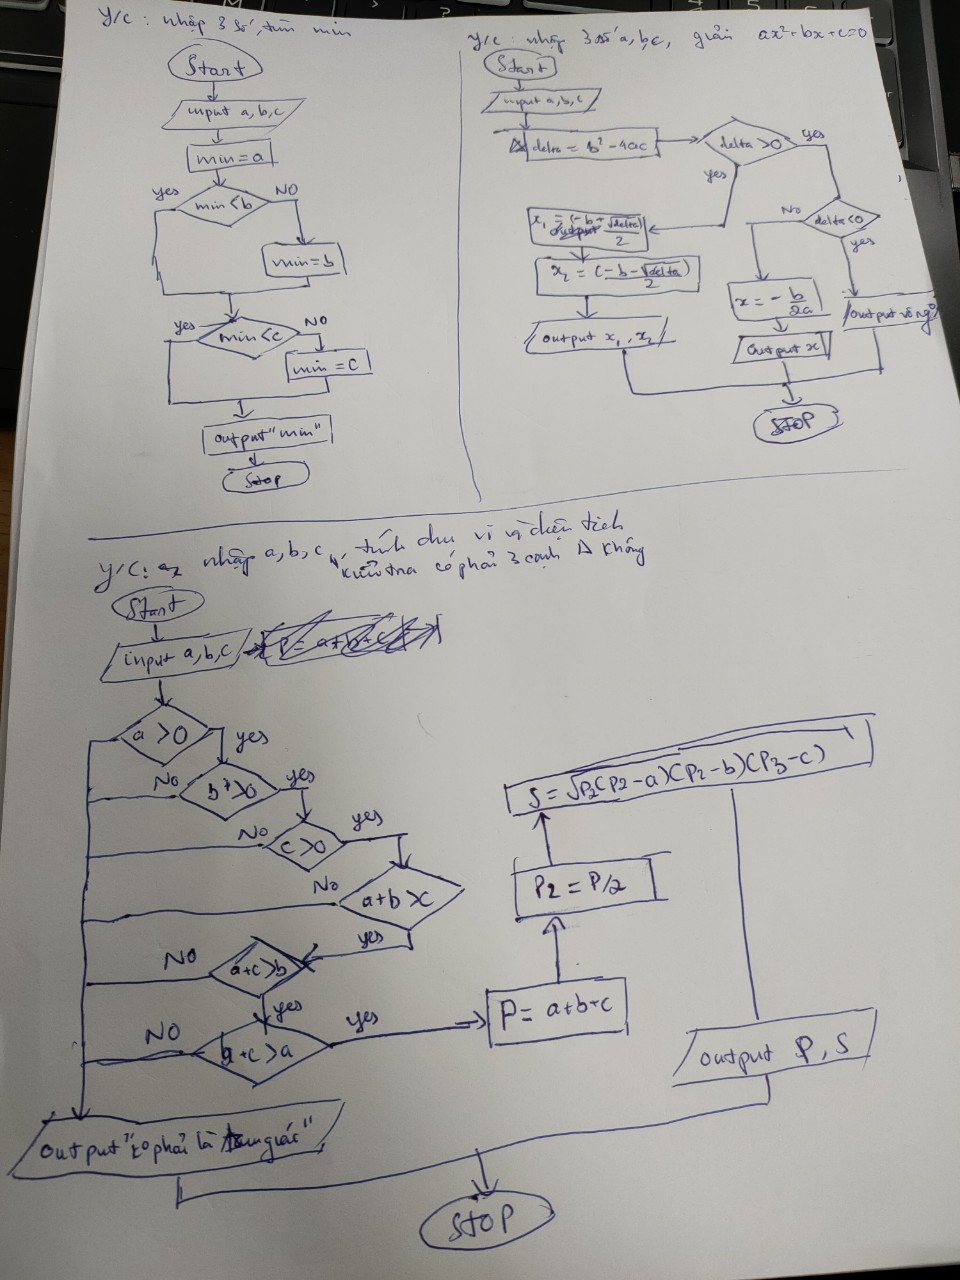 Y/c: nhập 3 số, tìm min
Start
input a, b, c
min = a
yes
min < b
NO
min = b
yes
min < c
NO
min = c
output "min"
Stop
Y/c: nhập 3 số a, b, c, giải ax² + bx + c = 0
Start
input a, b, c
delta = b² - 4ac
delta > 0
yes
yes
x₁ = (-b + √delta)/2
x₂ = (-b - √delta)/2
output x₁, x₂
No
delta < 0
yes
x = - b/2a
output x
output vô ng
STOP
Y/C: nhập a, b, c, tính chu vi và diện tích
kiểm tra có phải 3 cạnh Δ không
Start
input a, b, c
P = a+b+c
a > 0
yes
No
b > 0
yes
No
c > 0
yes
No
a+b > c
yes
NO
a+c > b
yes
NO
b+c > a
yes
P = a+b+c
P2 = P/2
S = √P2(P2-a)(P2-b)(P3-c)
output P, S
output "ko phải là tam giác"
STOP